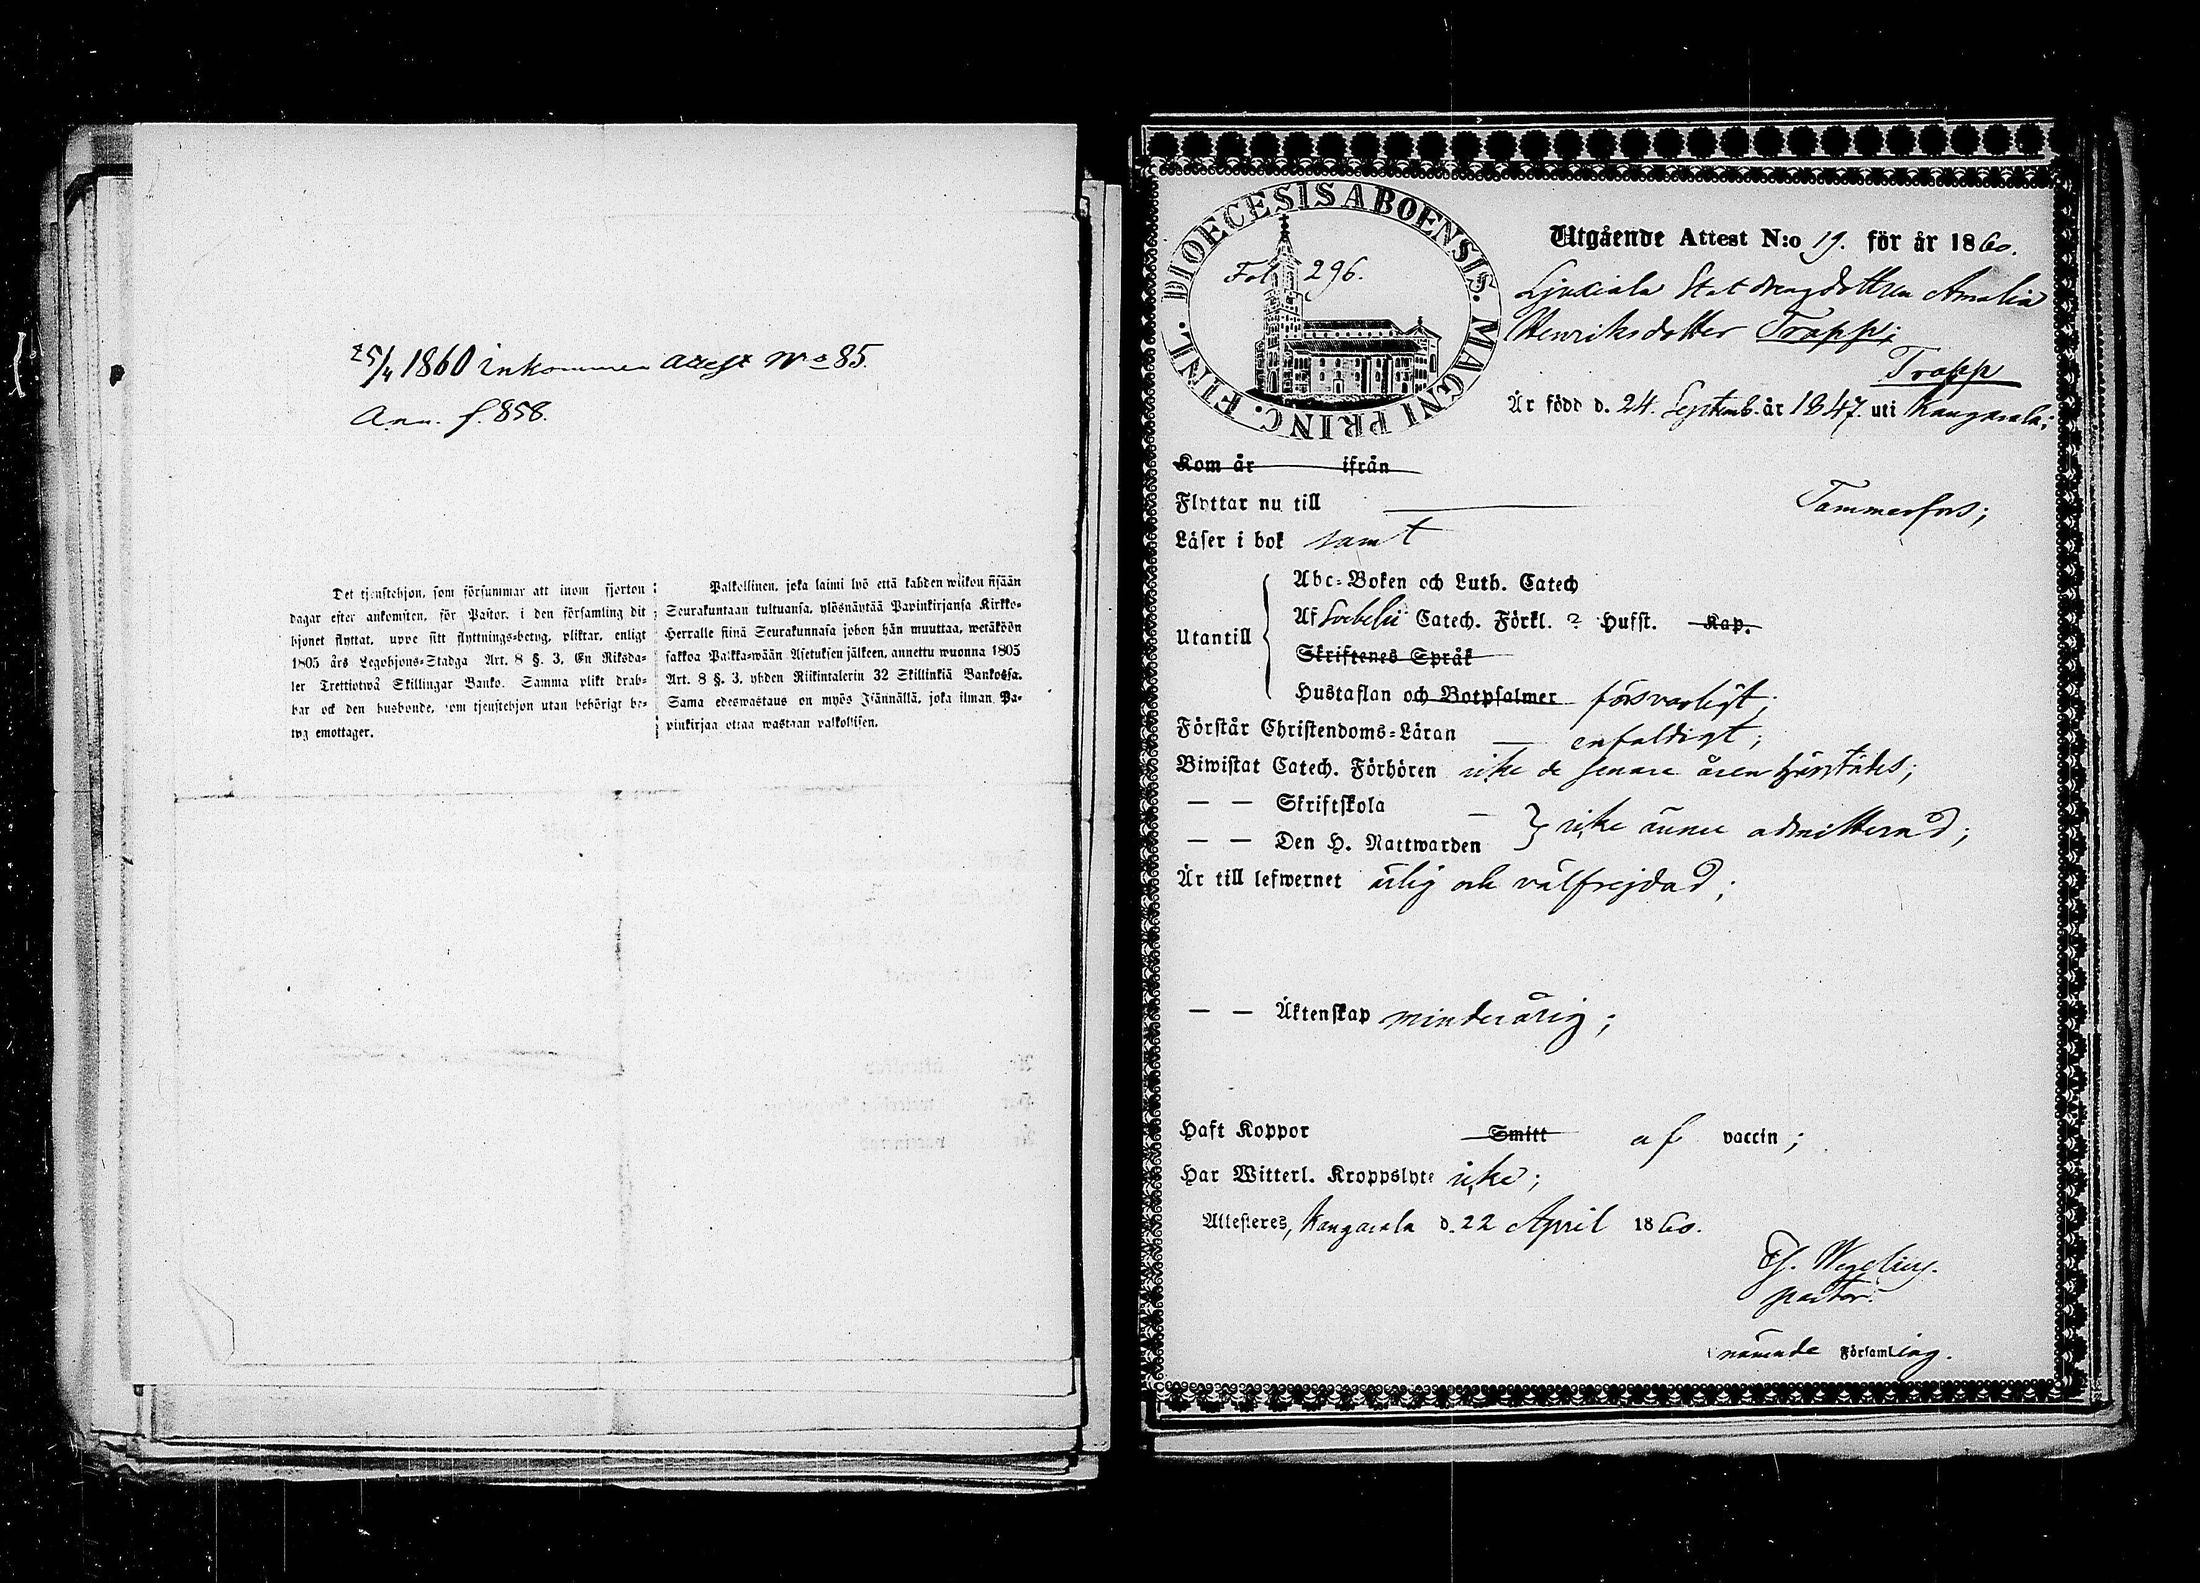 25/4 1860 inkommen attest No 85.
Ann. f. 858.
Det tjenstehjon, som försummar att inom fjorton
dagar efter ankomsten, för Pastor, i den församling dit
hjonet flyttat, uppe sitt flyttnings=betyg, pliktar, enligt
1805 års Legohjons=Stadga Art. 8 §. 3, En Riksda=
ler Trettiotwå Skillingar Banko. Samma plikt drab=
bar ock den husbonde, som tjenstehjon utan behörigt be=
tyg emottager.
Palkollinen, joka laimi lyö että kahden wiikon sisään
Seurakuntaan tultuansa, ylösnäyttää Papinkirjansa Kirkko=
Herralle siinä Seurakunnasa johon hän muuttaa, wetäköön
sakkoa Palkka=wään Asetuksen jälkeen, annettu wuonna 1805
Art. 8 §. 3, yhden Riikintalerin 32 Skillinkiä Bankossa.
Sama edeswastaus on myös Isännällä, joka ilman Pa=
pinkirjaa ottaa wastaan palkollisen.
DIOECESIS ABOENSIS. MAGNI PRINC. FINL.
Fol 296.
Utgående Attest N:o 19. för år 1860.
Ljuxiala Statdrengdottren Amalia
Henriksdotter Trapp;
Trapp
Är född d. 24. Septemb. år 1847. uti Kangasala;
Kom år ifrån
Flyttar nu till Tammerfors;
Läser i bok samt
Utantill
Abc=Boken och Luth. Catech
Af Svebelii Catech. Förkl. 2 Husst. Kap.
Skriftenes Språk
Hustaflan och Botpsalmer försvarligt;
Förstår Christendoms=Läran — enfaldigt;
Biwistat Catech. Förhören icke de senare åren härstädes;
— — Skriftskola —
— — Den H. Nattwarden } icke ännu admitterad;
Är till lefwernet ärlig och välfrejdad;
— — Äktenskap minderårig;
Haft Koppor Smitt af vaccin;
Har Witterl. Kroppslyte icke;
Attesteres, Kangasala d. 22 April 1860.
pastor.
nämnde Församling.